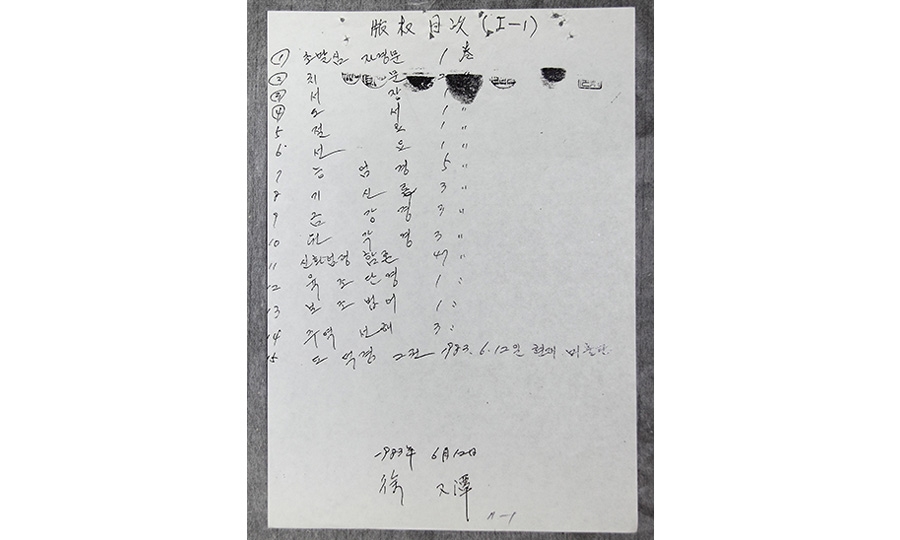 版权目次 (I-1)
① 초발심 자경문 1 巻
② 치 문 2 〃
③ 서 장 1 〃
④ 도 서 1 〃
5 절 요 1 〃
6 선 요 1 〃
7 능 엄 경 5 〃
8 기 신 론 3 〃
9 금 강 경 3 〃
10 원 각 경 3 〃
11 신화엄경 합론 47 〃
12 육 조 단경 1 〃
13 보 조 법어 1 〃
14 주역 선해 3 〃
15 도 덕경 1983. 6.12일 현재 미출간
1983年 6月12日
徐